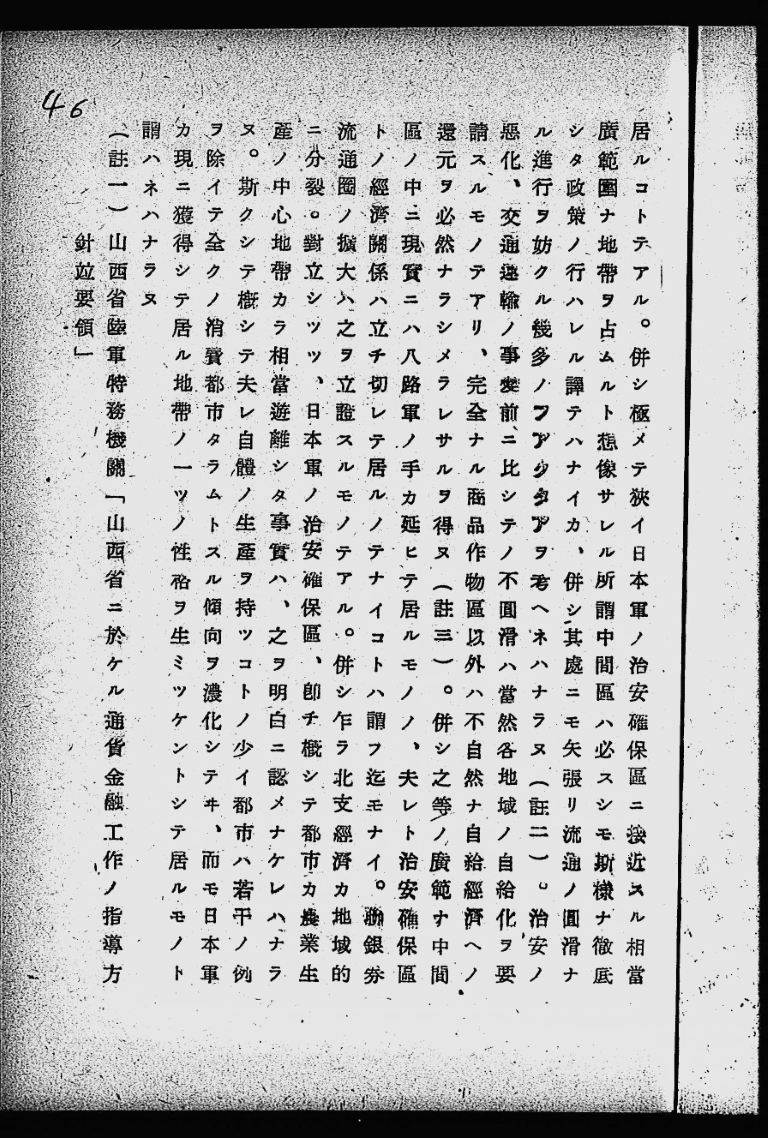 46
居ルコトテアル。併シ極メテ狹イ日本軍ノ治安確保區ニ接近スル相當
廣範圍ナ地帶ヲ占ムルト想像サレル所謂中間區ハ必スシモ斯樣ナ徹底
シタ政策ノ行ハレル譯テハナイカ、併シ其處ニモ矢張リ流通ノ圓滑ナ
ル進行ヲ妨クル幾多ノフアクタアヲ考ヘネハナラヌ(註二)。治安ノ
惡化、交通運輸ノ事變前ニ比シテノ不圓滑ハ當然各地域ノ自給化ヲ要
請スルモノテアリ、完全ナル商品作物區以外ハ不自然ナ自給經濟ヘノ
還元ヲ必然ナラシメラレサルヲ得ヌ(註三)。併シ之等ノ廣範ナ中間
區ノ中ニ現實ニハ八路軍ノ手カ延ヒテ居ルモノノ、夫レト治安確保區
トノ經濟關係ハ立チ切レテ居ルノテナイコトハ謂フ迄モナイ。聯銀券
流通圈ノ擴大ハ之ヲ立證スルモノテアル。併シ乍ラ北支經濟カ地域的
ニ分裂。對立シツツ、日本軍ノ治安確保區、卽チ概シテ都市カ農業生
產ノ中心地帶カラ相當遊離シタ事實ハ、之ヲ明白ニ認メナケレハナラ
ヌ。斯クシテ概シテ夫レ自體ノ生產ヲ持ツコトノ少イ都市ハ若干ノ例
ヲ除イテ全クノ消費都市タラムトスル傾向ヲ濃化シテヰ、而モ日本軍
カ現ニ獲得シテ居ル地帶ノ一ツノ性格ヲ生ミツケントシテ居ルモノト
謂ハネハナラヌ
(註一)山西省陸軍特務機關「山西省ニ於ケル通貨金融工作ノ指導方
針竝要領」